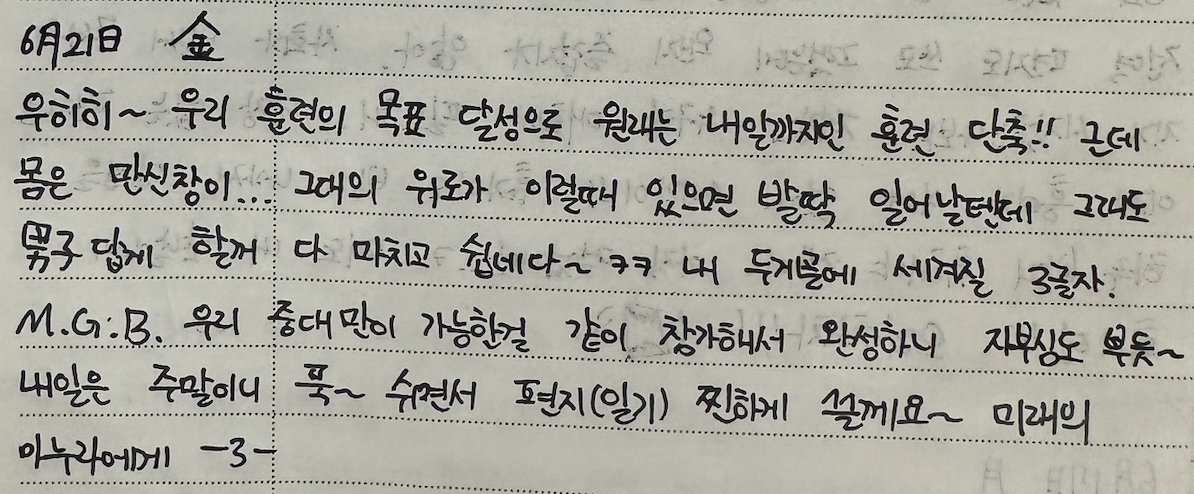 6月21日 金
우히히~ 우리 훈련의 목표 달성으로 원래는 내일까지인 훈련 단축!! 근데
몸은 만신창이... 그대의 위로가 이럴때 있으면 발딱 일어날텐데 그래도
男子답게 할꺼 다 마치고 쉽네다~ ㅋㅋ 내 두개골에 세겨질 3글자.
M.G.B. 우리 중대만이 가능한걸 같이 참가해서 완성하니 자부심도 뿌듯~
내일은 주말이니 푹~ 쉬면서 편지(일기) 찐하게 쓸께요~ 미래의
마누라에게 -3-